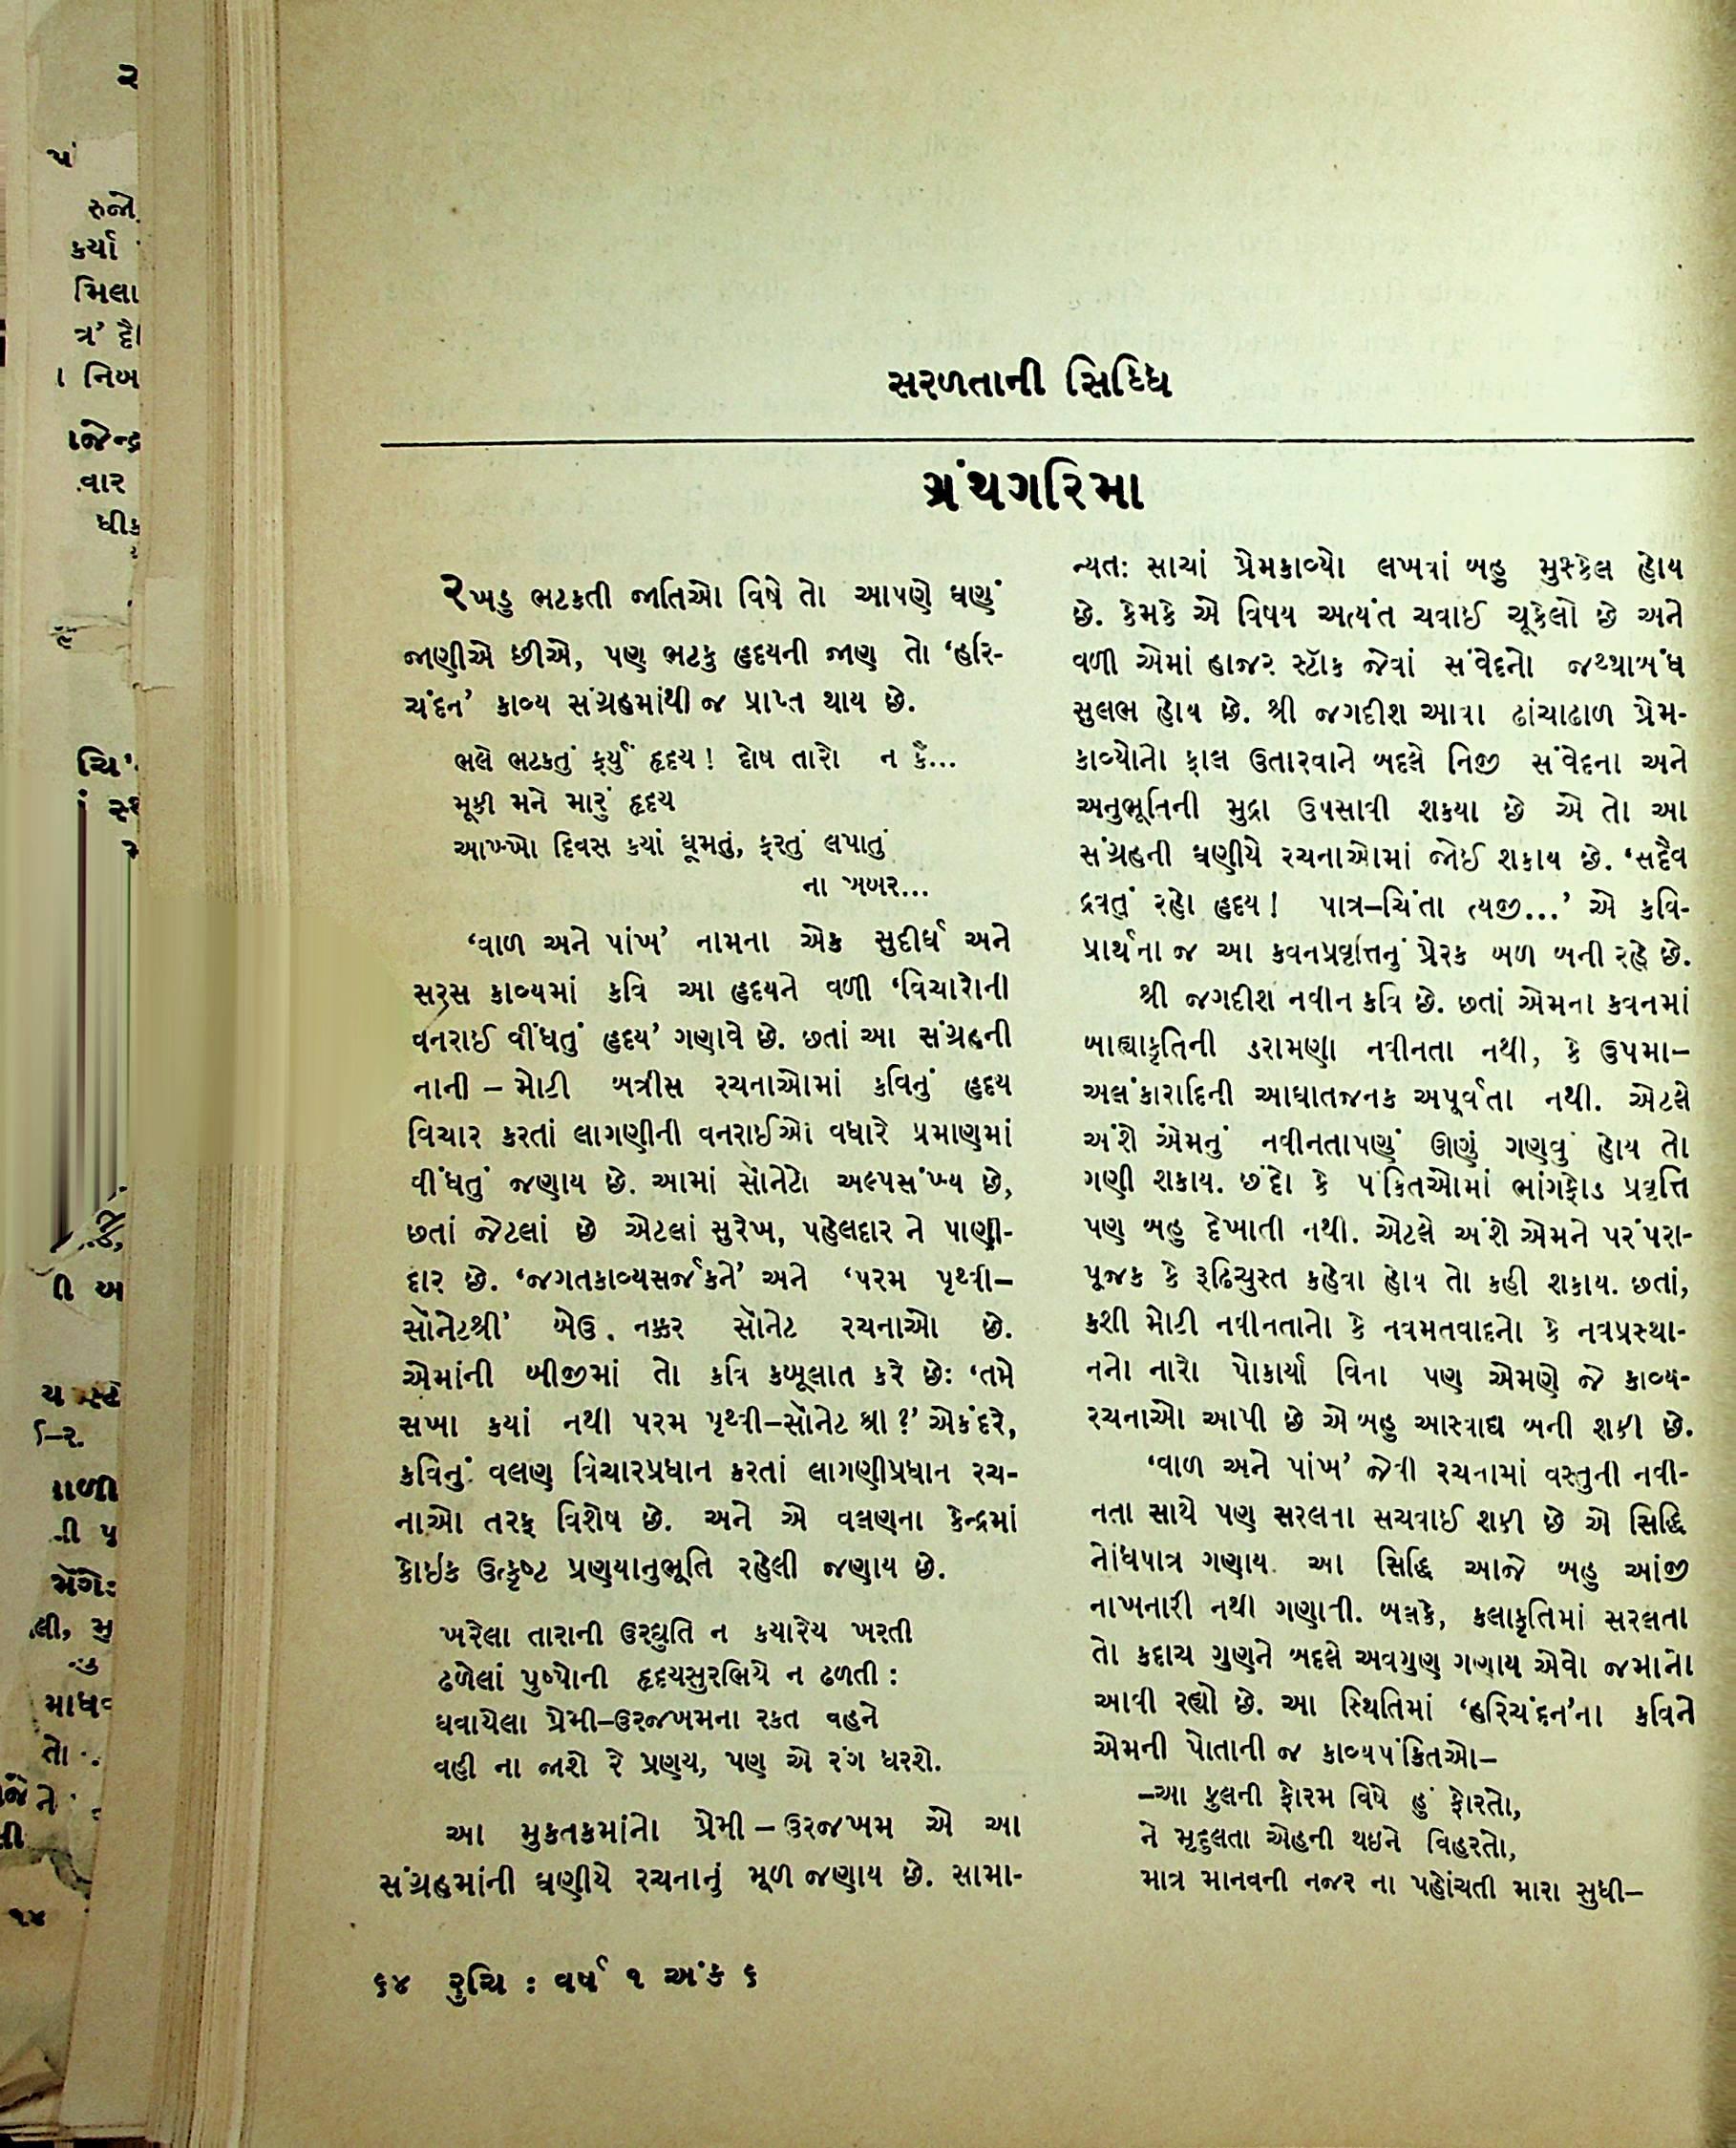 સરળતાની સિદ્ધિ
ગ્રંથગરિમા
રખડુ ભટકતી જાતિઓ વિષે તો આપણે ઘણું
જાણીએ છીએ, પણ ભટકુ હૃદયની જાણ તો ‘હરિ-
ચંદન’ કાવ્ય સંગ્રહમાંથી જ પ્રાપ્ત થાય છે.
ભલે ભટકતું ફર્યું હૃદય! દોષ તારો ન કૈં...
મૂકી મને મારું હૃદય
આખ્ખો દિવસ કયાં ઘૂમતું, ફરતું લપાતું
ના ખબર...
‘વાળ અને પાંખ’ નામના એક સુદીર્ઘ અને
સરસ કાવ્યમાં કવિ આ હૃદયને વળી ‘વિચારોની
વનરાઈ વીંધતું હૃદય’ ગણાવે છે. છતાં આ સંગ્રહની
નાની – મોટી બત્રીસ રચનાઓમાં કવિનું હૃદય
વિચાર કરતાં લાગણીની વનરાઈઓ વધારે પ્રમાણમાં
વીંધતું જણાય છે. આમાં સૉનેટો અલ્પસંખ્ય છે,
છતાં જેટલાં છે એટલાં સુરેખ, પહેલદાર ને પાણી-
દાર છે. ‘જગતકાવ્યસર્જકને’ અને ‘પરમ પૃથ્વી–
સૉનેટશ્રી’ બેઉ નક્કર સૉનેટ રચનાઓ છે.
એમાંની બીજીમાં તો કવિ કબૂલાત કરે છેઃ ‘તમે
સખા કયાં નથી પરમ પૃથ્વી–સૉનેટ શ્રી?’ એકંદરે,
કવિનું વલણ વિચારપ્રધાન કરતાં લાગણીપ્રધાન રચ-
નાઓ તરફ વિશેષ છે. અને એ વલણના કેન્દ્રમાં
કોઇક ઉત્કૃષ્ટ પ્રણયાનુભૂતિ રહેલી જણાય છે.
ખરેલા તારાની ઉરદ્યુતિ ન કયારેય ખરતી
ઢળેલાં પુષ્પોની હૃદયસુરભિયે ન ઢળતી :
ઘવાયેલા પ્રેમી–ઉરજખમના રકત વહને
વહી ના જાશે રે પ્રણય, પણ એ રંગ ધરશે.
આ મુકતકમાંનો પ્રેમી – ઉરજખમ એ આ
સંગ્રહમાંની ઘણીયે રચનાનું મૂળ જણાય છે. સામા-
ન્યતઃ સાચાં પ્રેમકાવ્યો લખવાં બહુ મુશ્કેલ હોય
છે. કેમકે એ વિષય અત્યંત ચવાઈ ચૂકેલો છે અને
વળી એમાં હાજર સ્ટૉક જેવાં સંવેદનો જથ્થાબંધ
સુલભ હોય છે. શ્રી જગદીશ આવા ઢાંચાઢાળ પ્રેમ-
કાવ્યોનો ફાલ ઉતારવાને બદલે નિજી સંવેદના અને
અનુભૂતિની મુદ્રા ઉપસાવી શકયા છે એ તો આ
સંગ્રહની ઘણીયે રચનાઓમાં જોઈ શકાય છે. ‘સદૈવ
દ્રવતું રહો હૃદય! પાત્ર–ચિંતા ત્યજી...’ એ કવિ-
પ્રાર્થના જ આ કવનપ્રવૃત્તિનું પ્રેરક બળ બની રહે છે.
શ્રી જગદીશ નવીન કવિ છે. છતાં એમના કવનમાં
બાહ્યાકૃતિની ડરામણી નવીનતા નથી, કે ઉપમા–
અલંકારાદિની આઘાતજનક અપૂર્વતા નથી. એટલે
અંશે એમનું નવીનતાપણું ઊણું ગણવું હોય તો
ગણી શકાય. છંદો કે પંકિતઓમાં ભાંગફોડ પ્રવૃત્તિ
પણ બહુ દેખાતી નથી. એટલે અંશે એમને પરંપરા-
પૂજક કે રૂઢિચુસ્ત કહેવા હોય તો કહી શકાય. છતાં,
કશી મોટી નવીનતાનો કે નવમતવાદનો કે નવપ્રસ્થા-
નનો નારો પોકાર્યા વિના પણ એમણે જે કાવ્ય-
રચનાઓ આપી છે એ બહુ આસ્વાદ્ય બની શકી છે.
‘વાળ અને પાંખ’ જેવી રચનામાં વસ્તુની નવી-
નતા સાથે પણ સરલતા સચવાઈ શકી છે એ સિદ્ધિ
નોંધપાત્ર ગણાય. આ સિદ્ધિ આજે બહુ આંજી
નાખનારી નથી ગણાતી. બલકે, કલાકૃતિમાં સરલતા
તો કદાચ ગુણને બદલે અવગુણ ગણાય એવો જમાનો
આવી રહ્યો છે. આ સ્થિતિમાં ‘હરિચંદન’ના કવિને
એમની પોતાની જ કાવ્યપંકિતઓ–
–આ ફુલની ફોરમ વિષે હું ફોરતો,
ને મૃદુલતા એહની થઇને વિહરતો,
માત્ર માનવની નજર ના પહોંચતી મારા સુધી–
૬૪ રુચિ : વર્ષ ૧ અંક ૬